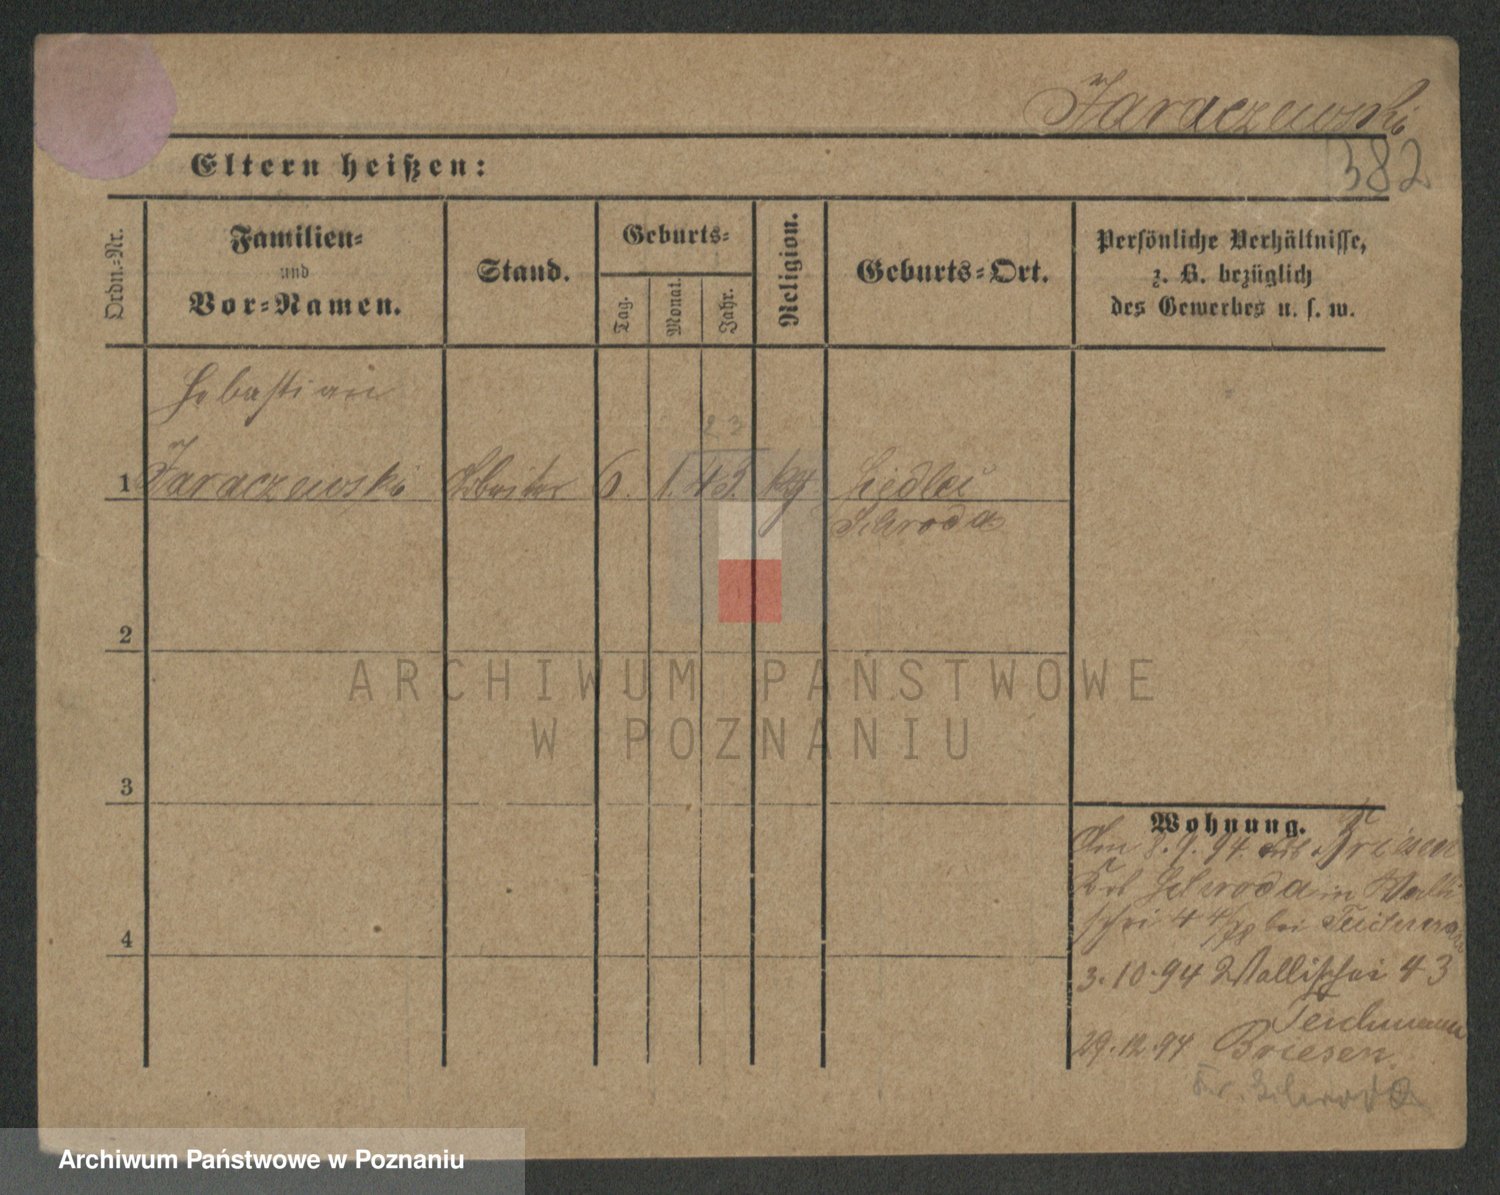 Jaraczewski
382
Eltern heißen:
Ordn.-Nr.
Familien-
und
Vor-Namen.
Stand.
Geburts-
Tag.
Monat.
Jahr.
Religion.
Geburts-Ort.
Persönliche Verhältnisse,
z. B. bezüglich
des Gewerbes u. s. w.
Sebastian
23
1 Jaraczewski Arbeiter 6. 1. 43. kg Siedlec
Schroda
2
3
4
Wohnung.
Am 8.9.94 aus Briesen
Krb Schroda in Walli
schei 44 bei
3.10.94 Wallischei 43
Teichmann
29.12.94 Briesen
Kr. Schroda
ARCHIWUM PAŃSTWOWE
W POZNANIU
Archiwum Państwowe w Poznaniu